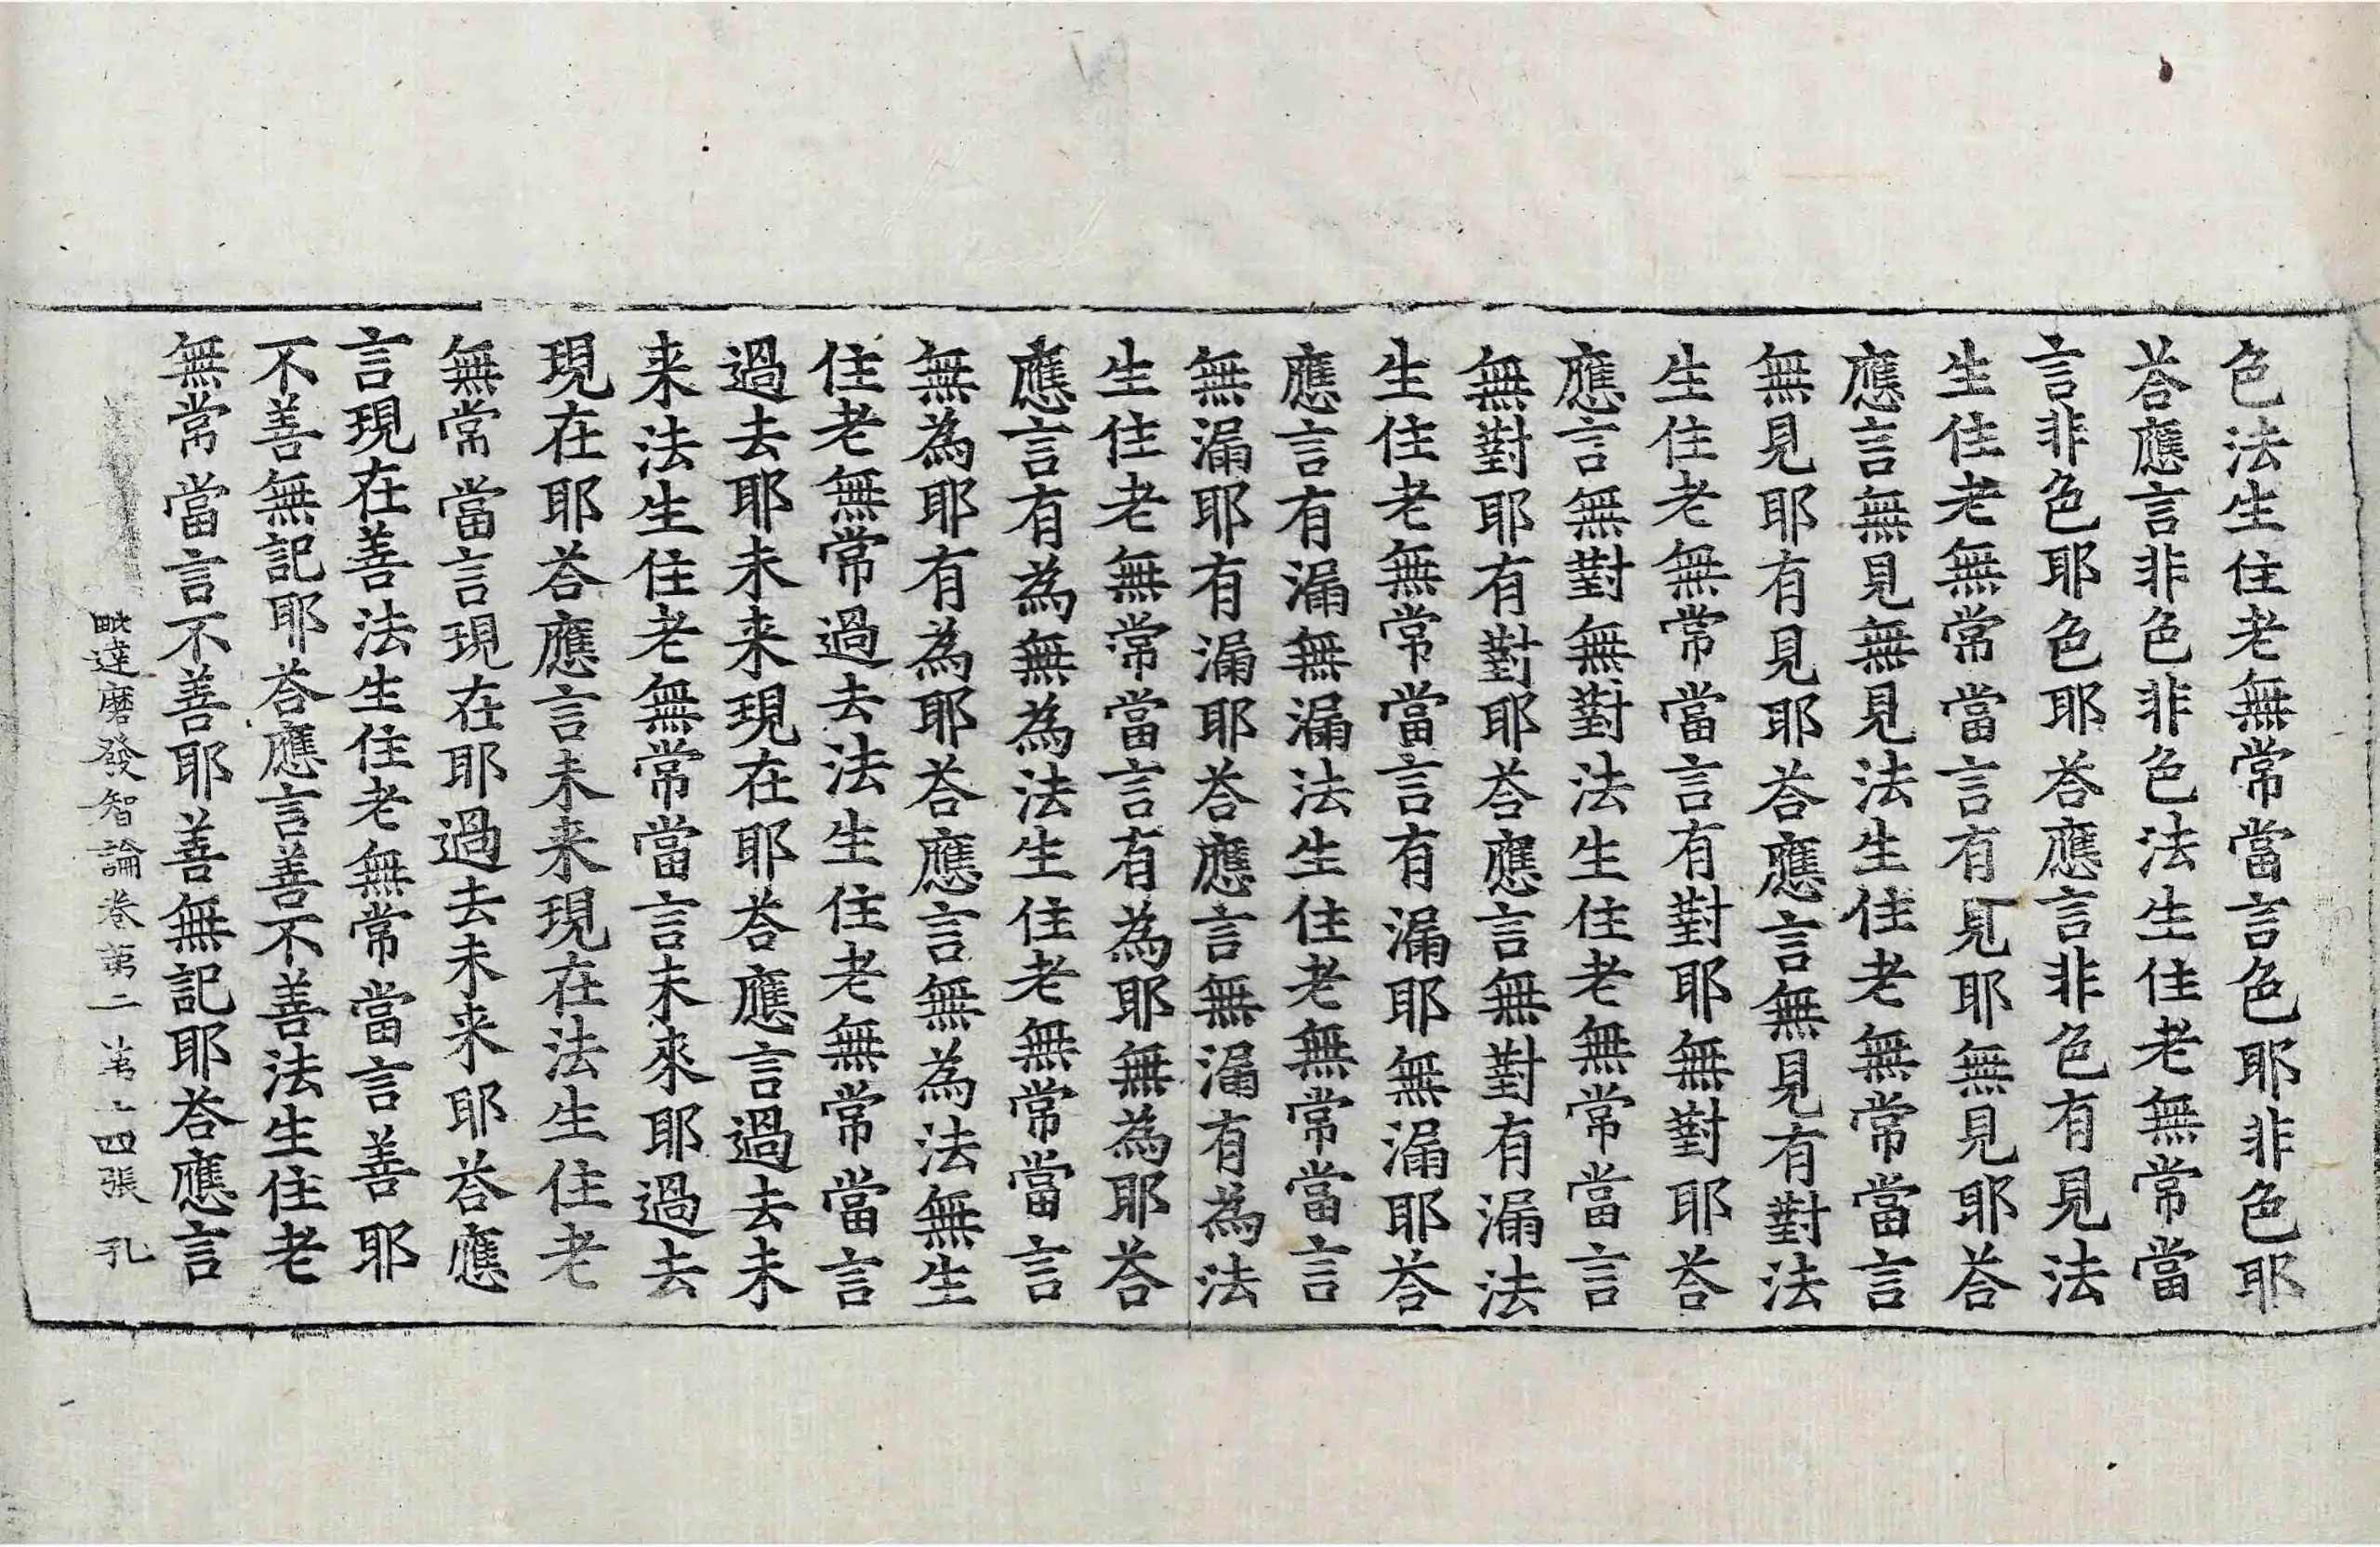 色法生住老無常當言色耶非色耶
荅應言非色非色法生住老無常當
言非色耶色耶荅應言非色有見法
生住老無常當言有見耶無見耶荅
應言無見無見法生住老無常當言
無見耶有見耶荅應言無見有對法
生住老無常當言有對耶無對耶荅
應言無對無對法生住老無常當言
無對耶有對耶荅應言無對有漏法
生住老無常當言有漏耶無漏耶荅
應言有漏無漏法生住老無常當言
無漏耶有漏耶荅應言無漏有為法
生住老無常當言有為耶無為耶荅
應言有為無為法生住老無常當言
無為耶有為耶荅應言無為法無生
住老無常過去法生住老無常當言
過去耶未来現在耶荅應言過去未
来法生住老無常當言未來耶過去
現在耶荅應言未来現在法生住老
無常當言現在耶過去未来耶荅應
言現在善法生住老無常當言善耶
不善無記耶荅應言善不善法生住老
無常當言不善耶善無記耶荅應言
毗達磨發智論卷第二 第十四張 孔